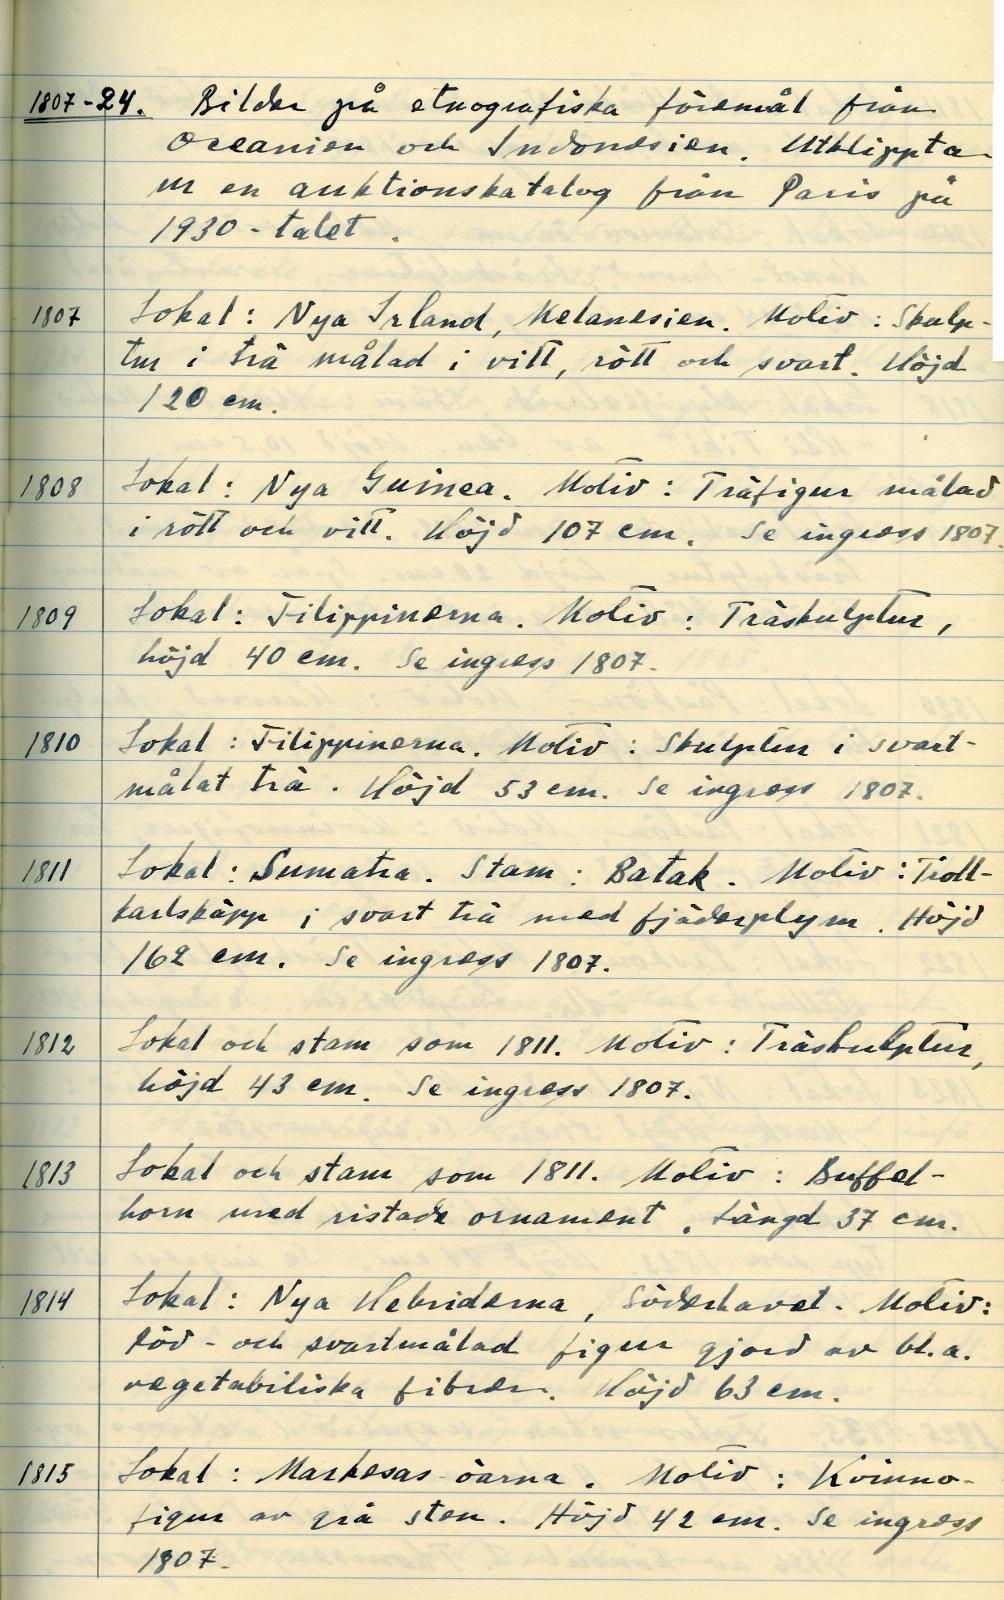 1807-24. Bilder på etnografiska föremål från
Oceanien och Indonesien. Utklippta
ur en auktionskatalog från Paris på
1930-talet.
1807 Lokal: Nya Irland, Melanesien. Motiv: Skulp-
tur i trä målad i vitt, rött och svart. Höjd
120 cm.
1808 Lokal: Nya Guinea. Motiv: Träfigur målad
i rött och vitt. Höjd 107 cm. Se ingress 1807.
1809 Lokal: Filippinerna. Motiv: Träskulptur,
höjd 40 cm. Se ingress 1807.
1810 Lokal: Filippinerna. Motiv: Skulptur i svart-
målat trä. Höjd 53 cm. Se ingress 1807.
1811 Lokal: Sumatra. Stam: Batak. Motiv: Troll-
karlskäpp i svart trä med fjäderplym. Höjd
162 cm. Se ingress 1807.
1812 Lokal och stam som 1811. Motiv: Träskulptur,
höjd 43 cm. Se ingress 1807.
1813 Lokal och stam som 1811. Motiv: Buffel-
horn med ristade ornament. Längd 37 cm.
1814 Lokal: Nya Hebriderna, Söderhavet. Motiv:
Röd- och svartmålad figur gjord av bl.a.
vegetabiliska fibrer. Höjd 63 cm.
1815 Lokal: Markesas-öarna. Motiv: Kvinno-
figur av grå sten. Höjd 42 cm. Se ingress
1807.